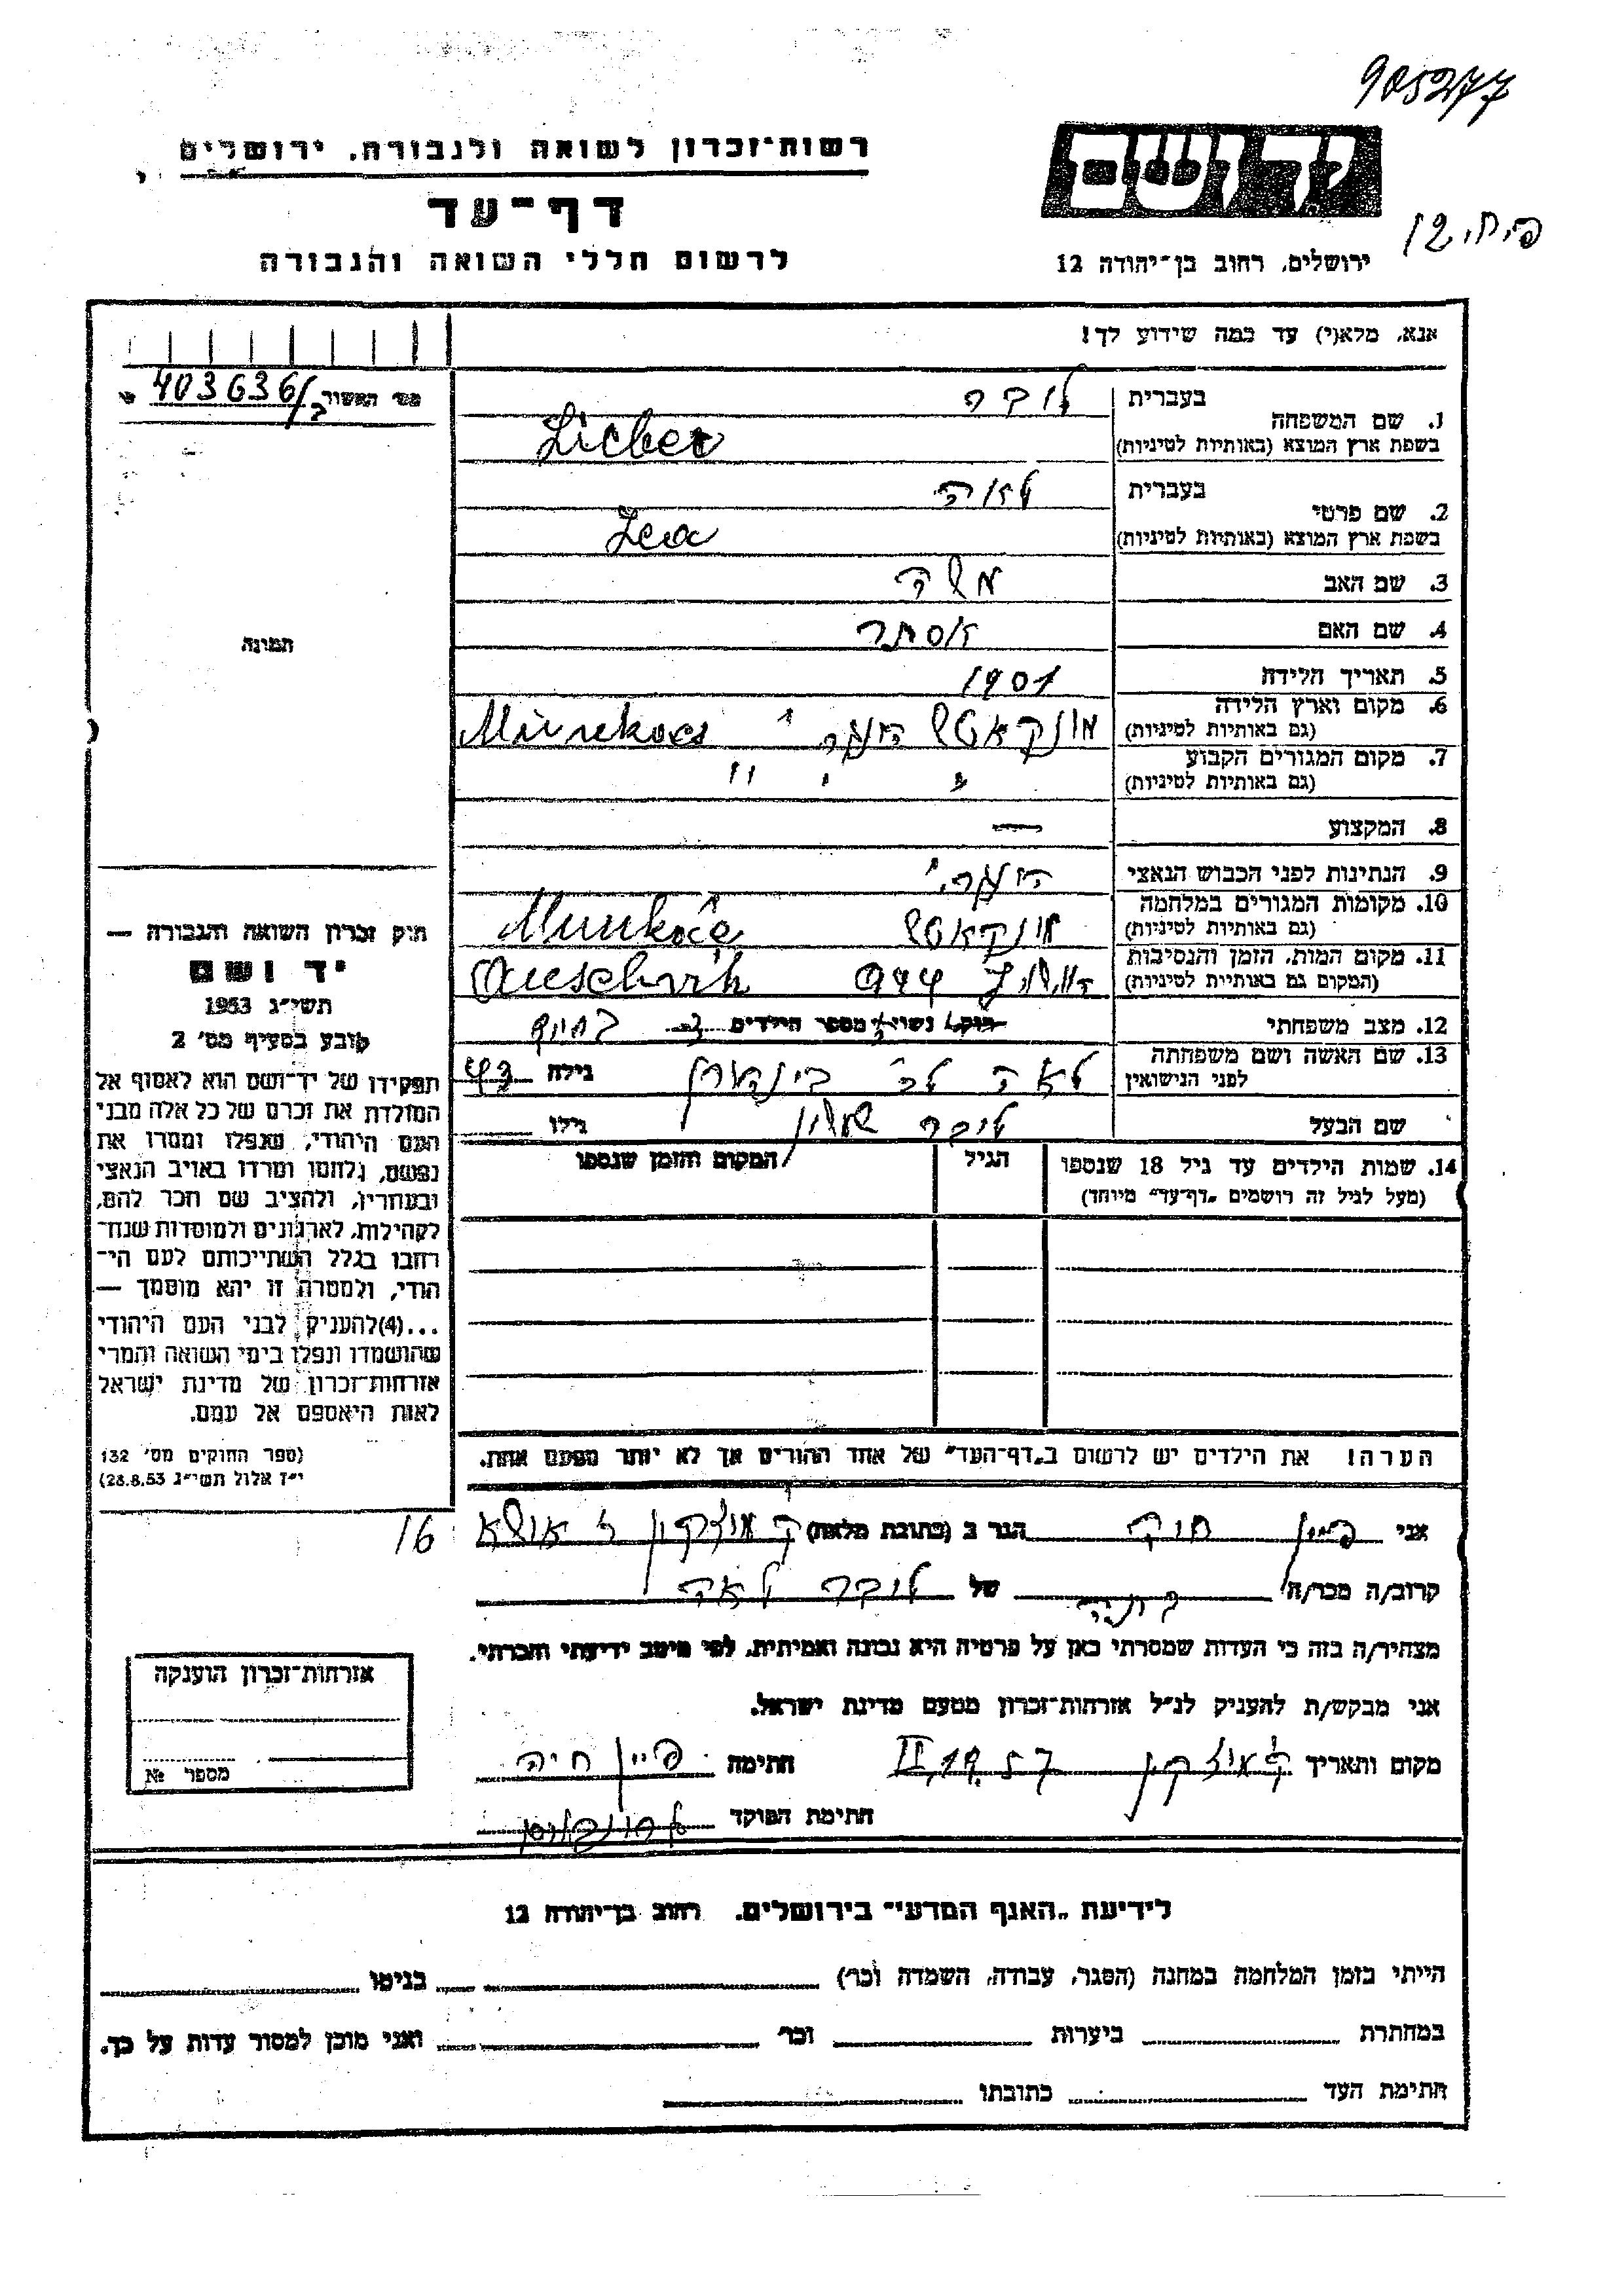 905277
רשות־זכרון לשואה ולגבורה, ירושלים
יד ושם
דף־עד
לרשום חללי השואה והגבורה
ירושלים, רחוב בן־יהודה 12
אנא, מלא(י) עד כמה שידוע לך!
מס׳ האשור 403636/
בעברית
1. שם המשפחה
בשפת ארץ המוצא (באותיות לטיניות) Lieber
בעברית לאה
2. שם פרטי
בשפת ארץ המוצא (באותיות לטיניות) Lea
3. שם האב משה
4. שם האם אסתר
5. תאריך הלידה 1901
6. מקום וארץ הלידה
(גם באותיות לטיניות)
7. מקום המגורים הקבוע " "
(גם באותיות לטיניות)
8. המקצוע —
9. הנתינות לפני הכבוש הנאצי
10. מקומות המגורים במלחמה
(גם באותיות לטיניות)
11. מקום המות, הזמן והנסיבות 944
(המקום גם באותיות לטיניות)
12. מצב משפחתי מספר הילדים
13. שם האשה ושם משפחתה לאה גילה 43
לפני הנישואין
שם הבעל גילו
14. שמות הילדים עד גיל 18 שנספו הגיל המקום והזמן שנספו
(מעל לגיל זה רושמים „דף־עד״ מיוחד)
תמונה
חוק זכרון השואה והגבורה —
יד ושם
תשי״ג 1953
קובע בסעיף מס׳ 2
תפקידו של יד־ושם הוא לאסוף אל
המולדת את זכרם של כל אלה מבני
העם היהודי, שנפלו ומסרו את
נפשם, נלחמו ומרדו באויב הנאצי
ובעוזריו, ולהציב שם וזכר להם,
לקהילות, לארגונים ולמוסדות שנח־
רחבו בגלל השתייכותם לעם הי־
הודי, ולמטרה זו יהא מוסמך —
...(4)להעניק לבני העם היהודי
שהושמדו ונפלו בימי השואה והמרי
אזרחות־זכרון של מדינת ישראל
לאות היאספם אל עמם.
(ספר החוקים מס׳ 132
י״ז אלול תשי״ג 28.8.53)
הערה! את הילדים יש לרשום ב„דף־העד״ של אחד ההורים אך לא יותר מפעם אחת.
אני פיין חיה הגר ב (כתובת מלאה) 16
קרוב/ה מכר/ה של ליבר לאה
מצהיר/ה בזה כי העדות שמסרתי כאן על פרטיה היא נכונה ואמיתית, לפי מיטב ידיעתי והכרתי.
אני מבקש/ת להעניק לנ״ל אזרחות־זכרון מטעם מדינת ישראל.
מקום ותאריך II.19.57 חתימה פיין חיה
חתימת הפוקד
אזרחות־זכרון הוענקה
מספר №
לידיעת „האגף המדעי״ בירושלים. רחוב בן־יהודה 12
הייתי בזמן המלחמה במחנה (הסגר, עבודה, השמדה וכו׳) בגיטו
במחתרת ביערות וכו׳ ואני מוכן למסור עדות על כך.
חתימת העד כתובתו